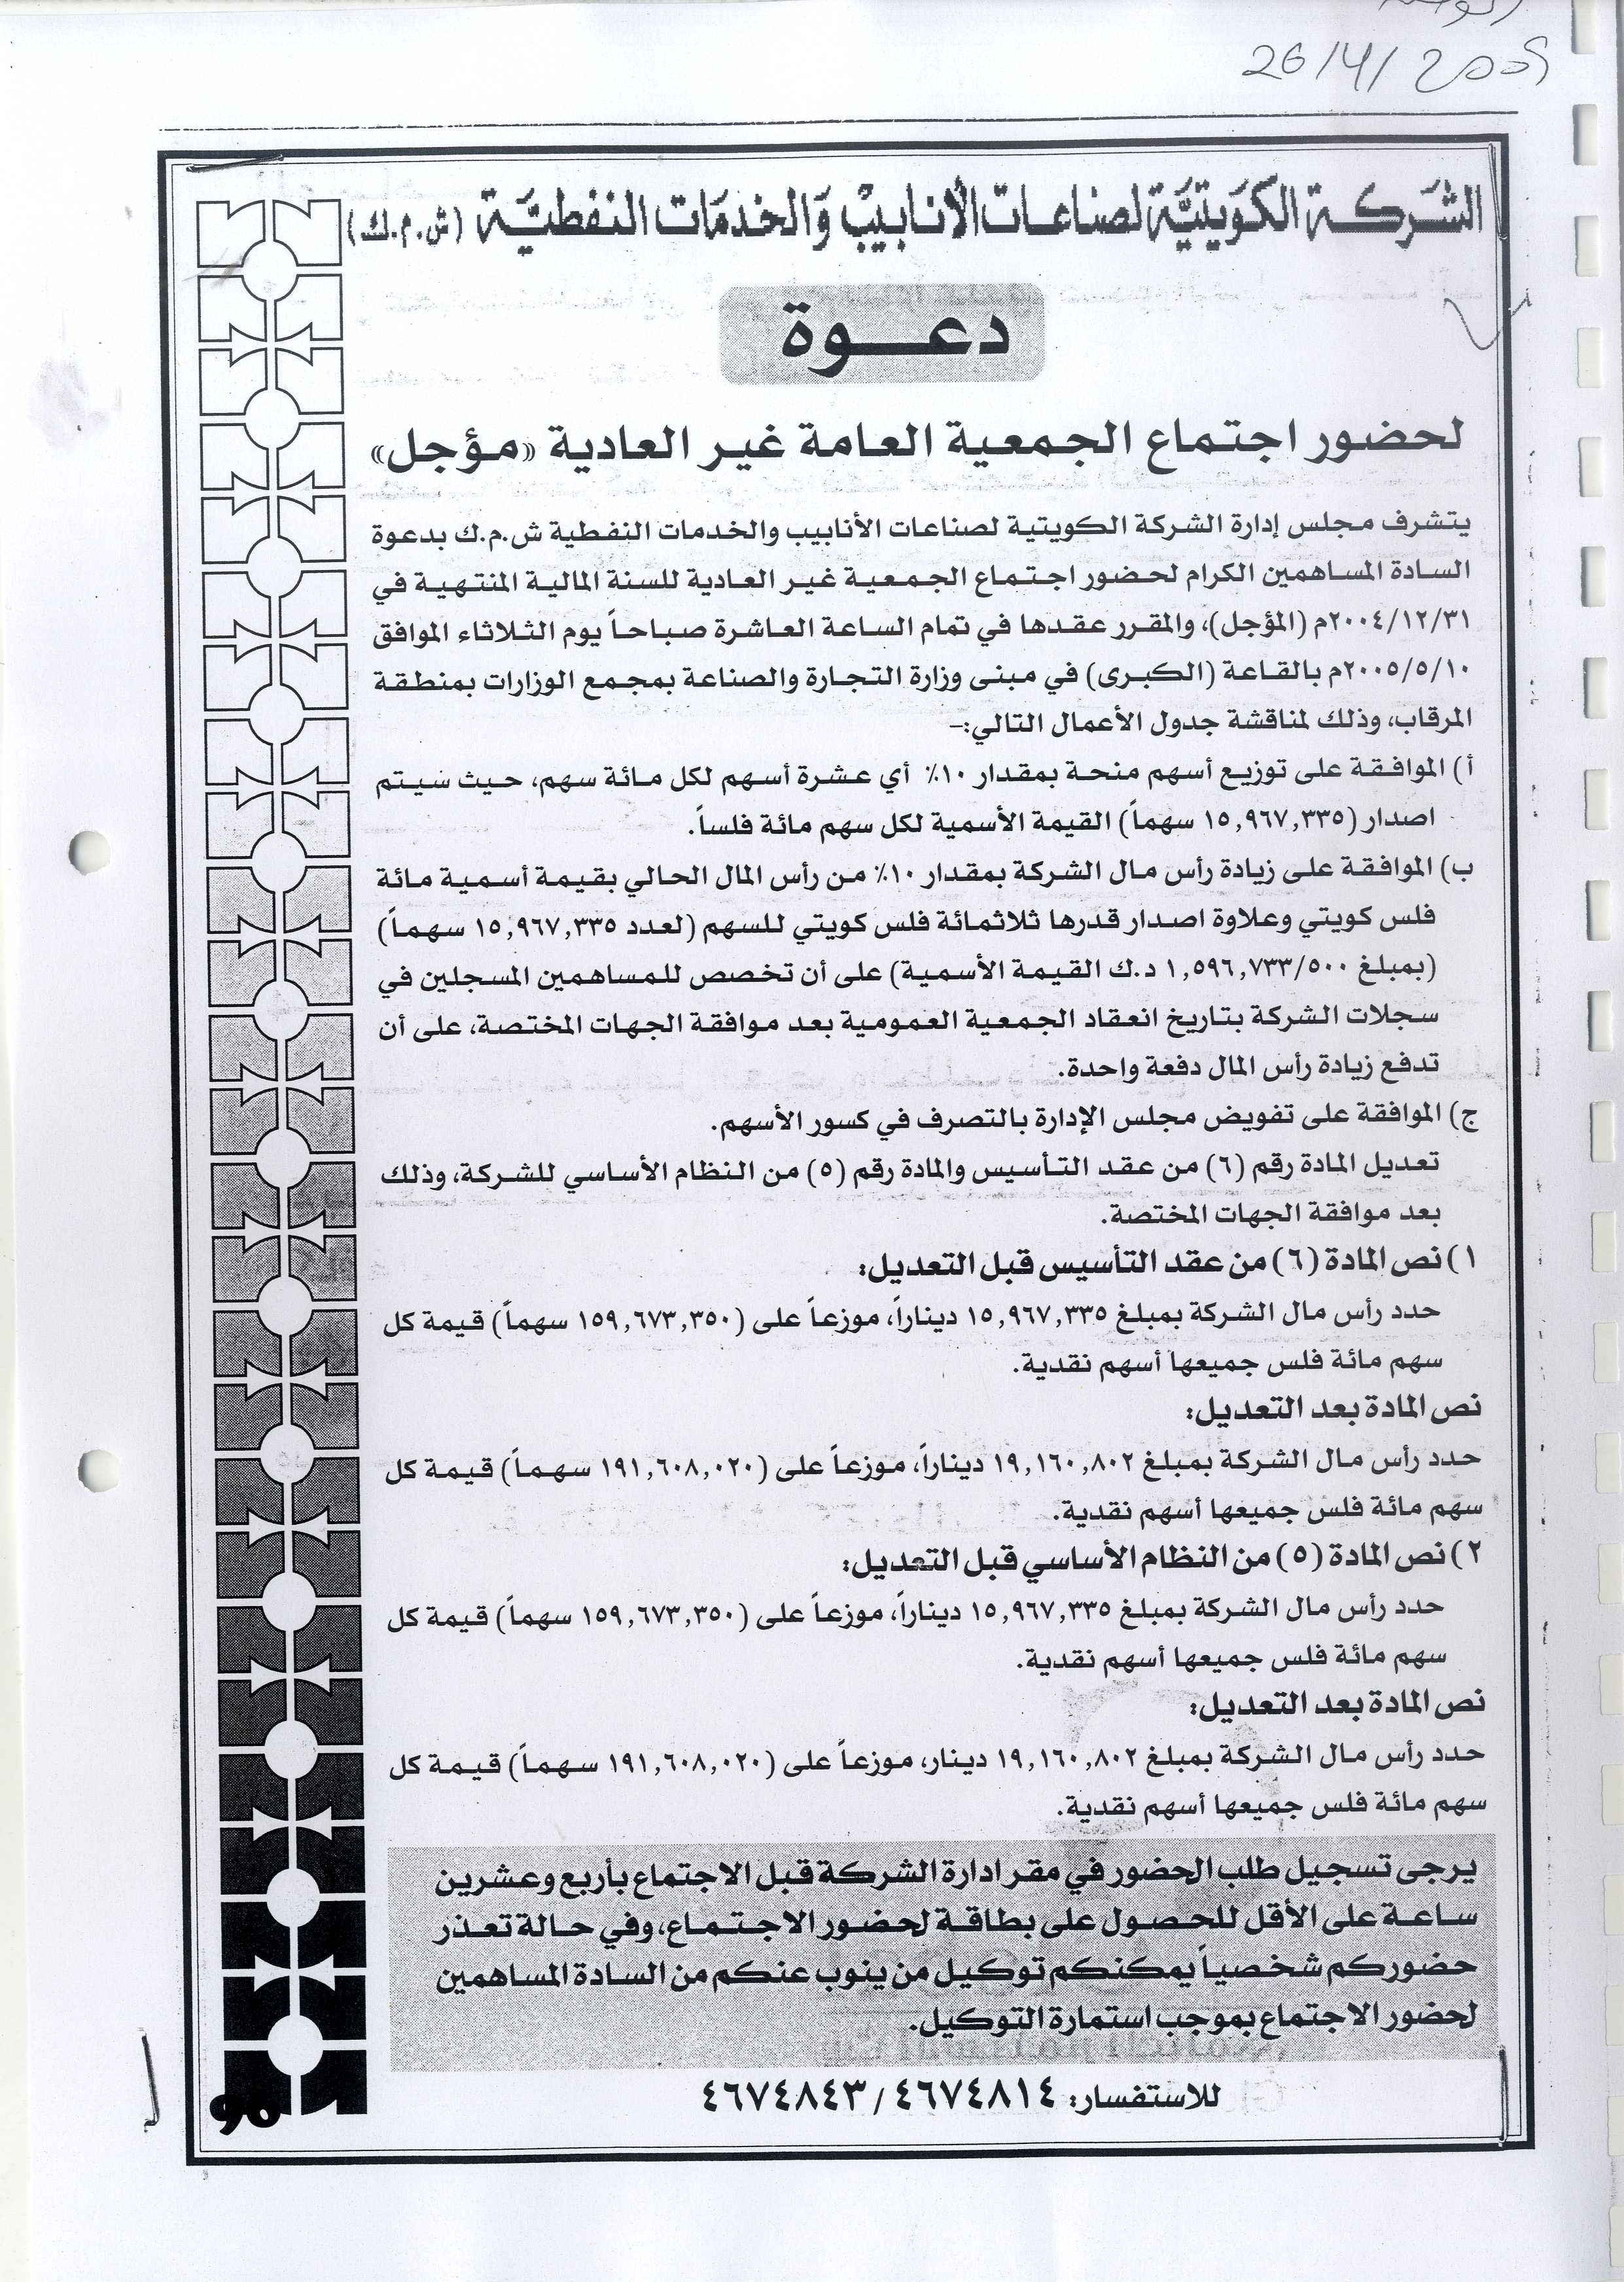 26/4/2005
الشركة الكويتية لصناعات الأنابيب والخدمات النفطية (ش.م.ك)
دعـــوة
لحضور اجتماع الجمعية العامة غير العادية «مؤجل»
يتشرف مجلس إدارة الشركة الكويتية لصناعات الأنابيب والخدمات النفطية ش.م.ك بدعوة
السادة المساهمين الكرام لحضور اجتماع الجمعية غير العادية للسنة المالية المنتهية في
٢٠٠٤/١٢/٣١م (المؤجل)، والمقرر عقدها في تمام الساعة العاشرة صباحاً يوم الثلاثاء الموافق
٢٠٠٥/٥/١٠م بالقاعة (الكبرى) في مبنى وزارة التجارة والصناعة بمجمع الوزارات بمنطقة
المرقاب، وذلك لمناقشة جدول الأعمال التالي:-
أ) الموافقة على توزيع أسهم منحة بمقدار ١٠٪ أي عشرة أسهم لكل مائة سهم، حيث سيتم
اصدار (١٥,٩٦٧,٣٣٥ سهماً) القيمة الأسمية لكل سهم مائة فلساً.
ب) الموافقة على زيادة رأس مال الشركة بمقدار ١٠٪ من رأس المال الحالي بقيمة أسمية مائة
فلس كويتي وعلاوة اصدار قدرها ثلاثمائة فلس كويتي للسهم (لعدد ١٥,٩٦٧,٣٣٥ سهماً)
(بمبلغ ١,٥٩٦,٧٣٣/٥٠٠ د.ك القيمة الأسمية) على أن تخصص للمساهمين المسجلين في
سجلات الشركة بتاريخ انعقاد الجمعية العمومية بعد موافقة الجهات المختصة، على أن
تدفع زيادة رأس المال دفعة واحدة.
ج) الموافقة على تفويض مجلس الإدارة بالتصرف في كسور الأسهم.
تعديل المادة رقم (٦) من عقد التأسيس والمادة رقم (٥) من النظام الأساسي للشركة، وذلك
بعد موافقة الجهات المختصة.
١) نص المادة (٦) من عقد التأسيس قبل التعديل:
حدد رأس مال الشركة بمبلغ ١٥,٩٦٧,٣٣٥ ديناراً، موزعاً على (١٥٩,٦٧٣,٣٥٠ سهماً) قيمة كل
سهم مائة فلس جميعها أسهم نقدية.
نص المادة بعد التعديل:
حدد رأس مال الشركة بمبلغ ١٩,١٦٠,٨٠٢ ديناراً، موزعاً على (١٩١,٦٠٨,٠٢٠ سهماً) قيمة كل
سهم مائة فلس جميعها أسهم نقدية.
٢) نص المادة (٥) من النظام الأساسي قبل التعديل:
حدد رأس مال الشركة بمبلغ ١٥,٩٦٧,٣٣٥ ديناراً، موزعاً على (١٥٩,٦٧٣,٣٥٠ سهماً) قيمة كل
سهم مائة فلس جميعها أسهم نقدية.
نص المادة بعد التعديل:
حدد رأس مال الشركة بمبلغ ١٩,١٦٠,٨٠٢ دينار، موزعاً على (١٩١,٦٠٨,٠٢٠ سهماً) قيمة كل
سهم مائة فلس جميعها أسهم نقدية.
يرجى تسجيل طلب الحضور في مقر ادارة الشركة قبل الاجتماع بأربع وعشرين
ساعة على الأقل للحصول على بطاقة لحضور الاجتماع، وفي حالة تعذر
حضوركم شخصياً يمكنكم توكيل من ينوب عنكم من السادة المساهمين
لحضور الاجتماع بموجب استمارة التوكيل.
للاستفسار: ٤٦٧٤٨١٤ / ٤٦٧٤٨٤٣